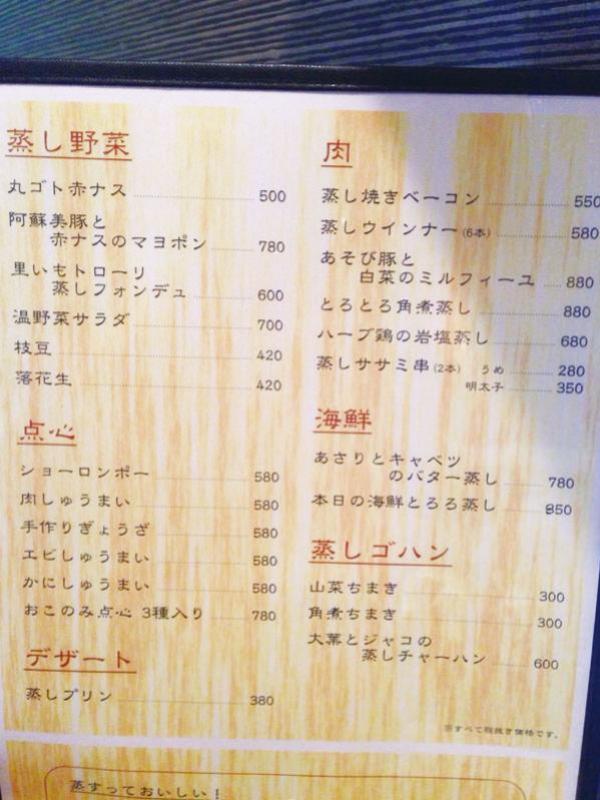 蒸し野菜
丸ゴト赤ナス 500
阿蘇美豚と
赤ナスのマヨポン 780
里いもトローリ
蒸しフォンデュ 600
温野菜サラダ 700
枝豆 420
落花生 420
点心
ショーロンポー 580
肉しゅうまい 580
手作りぎょうざ 580
エビしゅうまい 580
かにしゅうまい 580
おこのみ点心 3種入り 780
デザート
蒸しプリン 380
肉
蒸し焼きベーコン 550
蒸しウインナー(6本) 580
あそび豚と
白菜のミルフィーユ 880
とろとろ角煮蒸し 880
ハーブ鶏の岩塩蒸し 680
蒸しササミ串(2本) うめ 280
明太子 350
海鮮
あさりとキャベツ
のバター蒸し 780
本日の海鮮とろろ蒸し 850
蒸しゴハン
山菜ちまき 300
角煮ちまき 300
大葉とジャコの
蒸しチャーハン 600
※すべて税抜き価格です。
蒸すっておいしい！